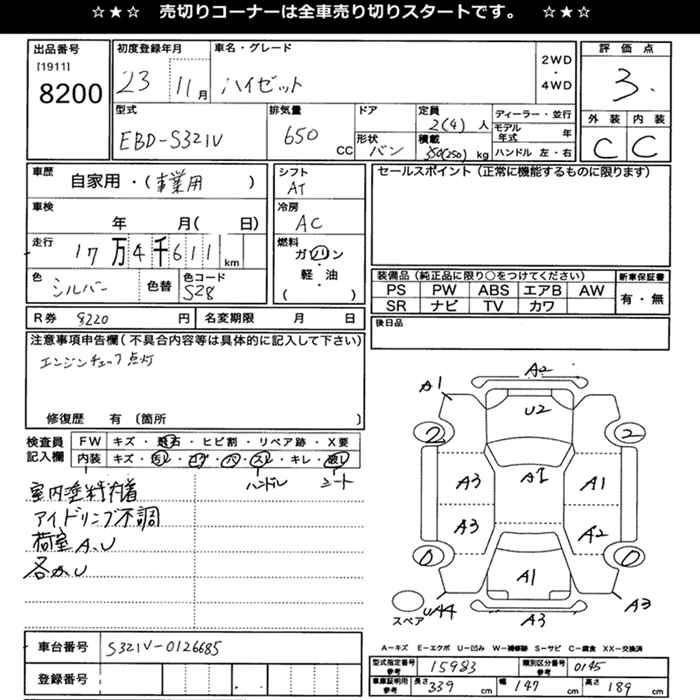 ☆★☆ 売切りコーナーは全車売り切りスタートです。 ☆★☆
出品番号
[1911]
8200
初度登録年月
23 11 月
車名・グレード
ハイゼット
2WD
・
4WD
評価点
3.
外装 内装
C C
型式
EBD-S321V
排気量
650 CC
ドア
形状
バン
定員
2(4) 人
積載
350(250) kg
ディーラー・並行
モデル年式 年
ハンドル 左・右
車歴
自家用・(事業用)
車検
年 月( 日)
走行
17万4千611 km
色
シルバー
色替
色コード
S28
シフト
AT
冷房
AC
燃料
ガソリン
・
軽・油
( )
セールスポイント(正常に機能するものに限ります)
装備品(純正品に限り○をつけてください)
PS PW ABS エアB AW
SR ナビ TV カワ
新車保証書
有・無
後日品
R券 8220 円
名変期限 月 日
注意事項申告欄(不具合内容等は具体的に記入して下さい)
エンジンチェック点灯
修復歴 有 〔箇所 〕
検査員
記入欄
FW キズ・飛石・ヒビ割・リペア跡・X要
内装 キズ・汚レ・コゲ・穴・スレ・キレ・破レ
ハンドル シート
室内塗料付着
アイドリング不調
荷室A.U
各カU
A2
A1
U2
2 2
A3 A1 A1
A3 A2
0 0
A1
スペア UA4 A3 A3
A-キズ E-エクボ U-凹み W-補修跡 S-サビ C-腐食 XX-交換済
車台番号 S321V-0126685
登録番号
型式指定番号 参考 15983
類別区分番号 参考 0145
車庫証明用 参考 長さ 339 cm 幅 147 cm 高さ 189 cm